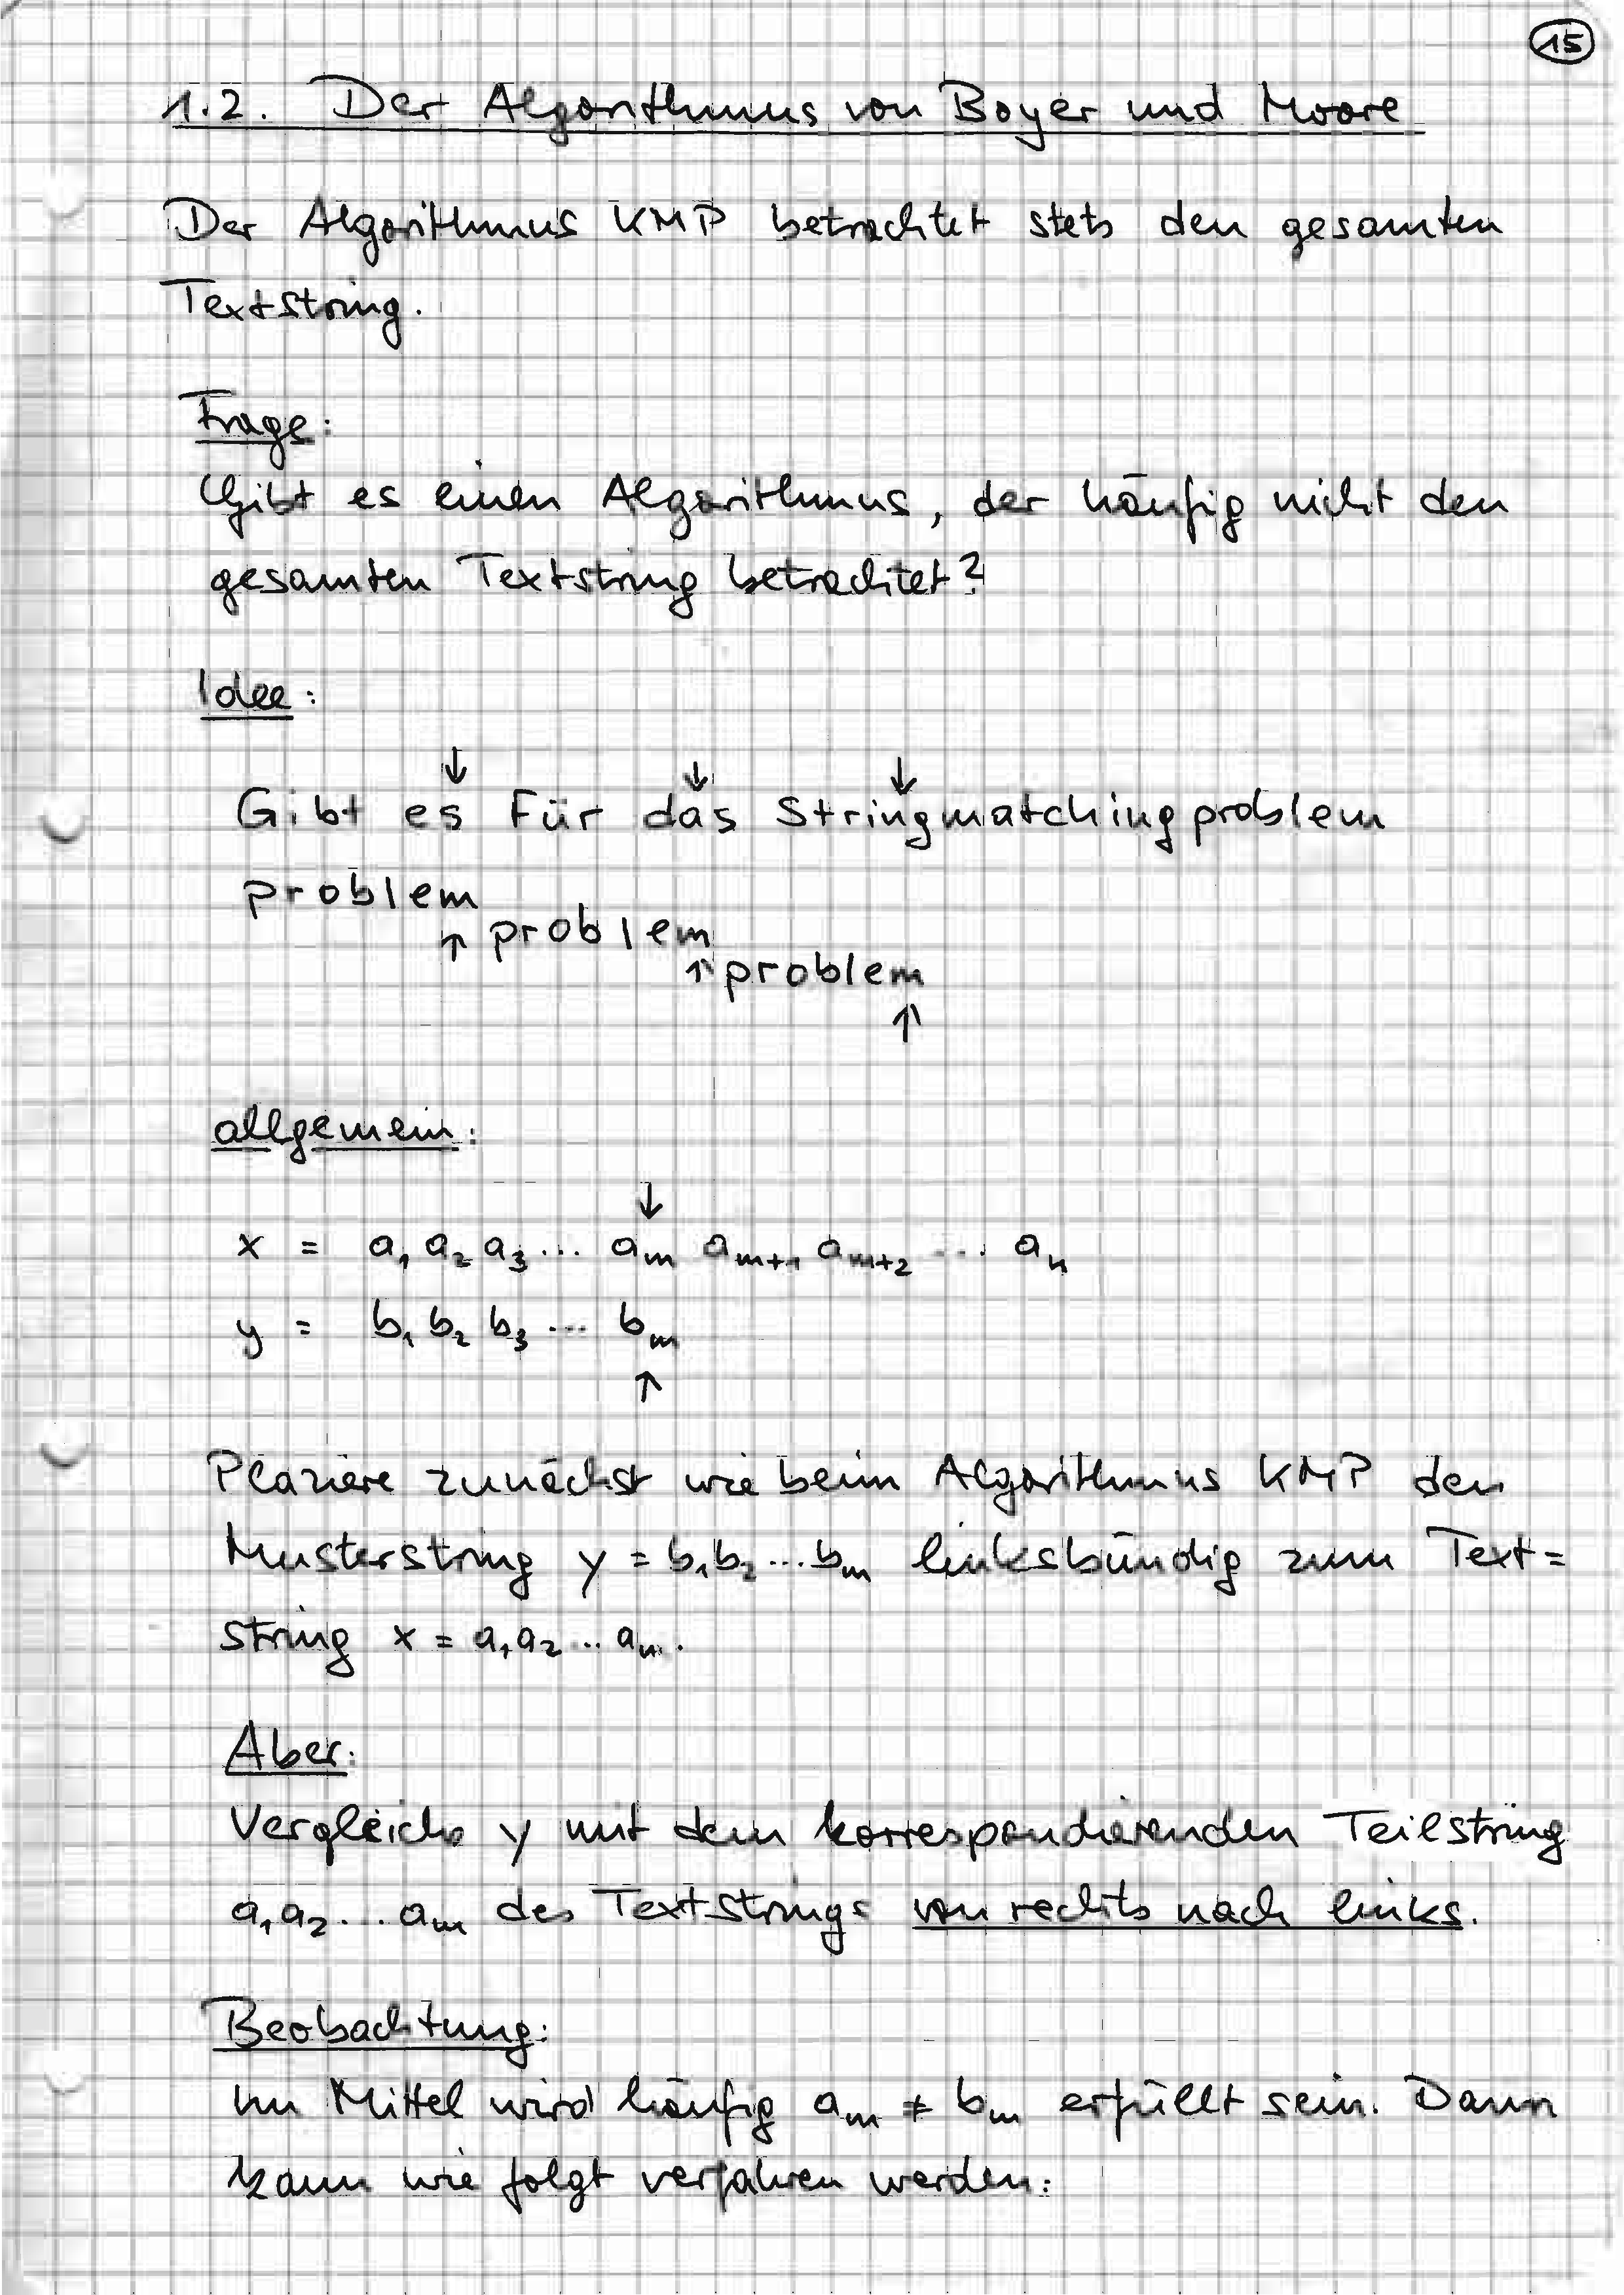 15
1.2. Der Algorithmus von Boyer und Moore
Der Algorithmus KMP betrachtet stets den gesamten
Textstring.
Frage:
Gibt es einen Algorithmus, der häufig nicht den
gesamten Textstring betrachtet?
Idee:
↓ ↓ ↓
Gibt es für das Stringmatchingproblem
problem
↑ problem
↑ problem
↑
allgemein:
↓
x = a₁ a₂ a₃ ... aₘ aₘ₊₁ aₘ₊₂ ... aₙ
y = b₁ b₂ b₃ ... bₘ
↑
Plaziere zunächst wie beim Algorithmus KMP den
Musterstring y = b₁b₂...bₘ linksbündig zum Text=
string x = a₁a₂...aₙ.
Aber:
Vergleiche y mit dem korrespondierenden Teilstring
a₁a₂...aₘ des Textstrings von rechts nach links.
Beobachtung:
Im Mittel wird häufig aₘ ≠ bₘ erfüllt sein. Dann
kann wie folgt verfahren werden: